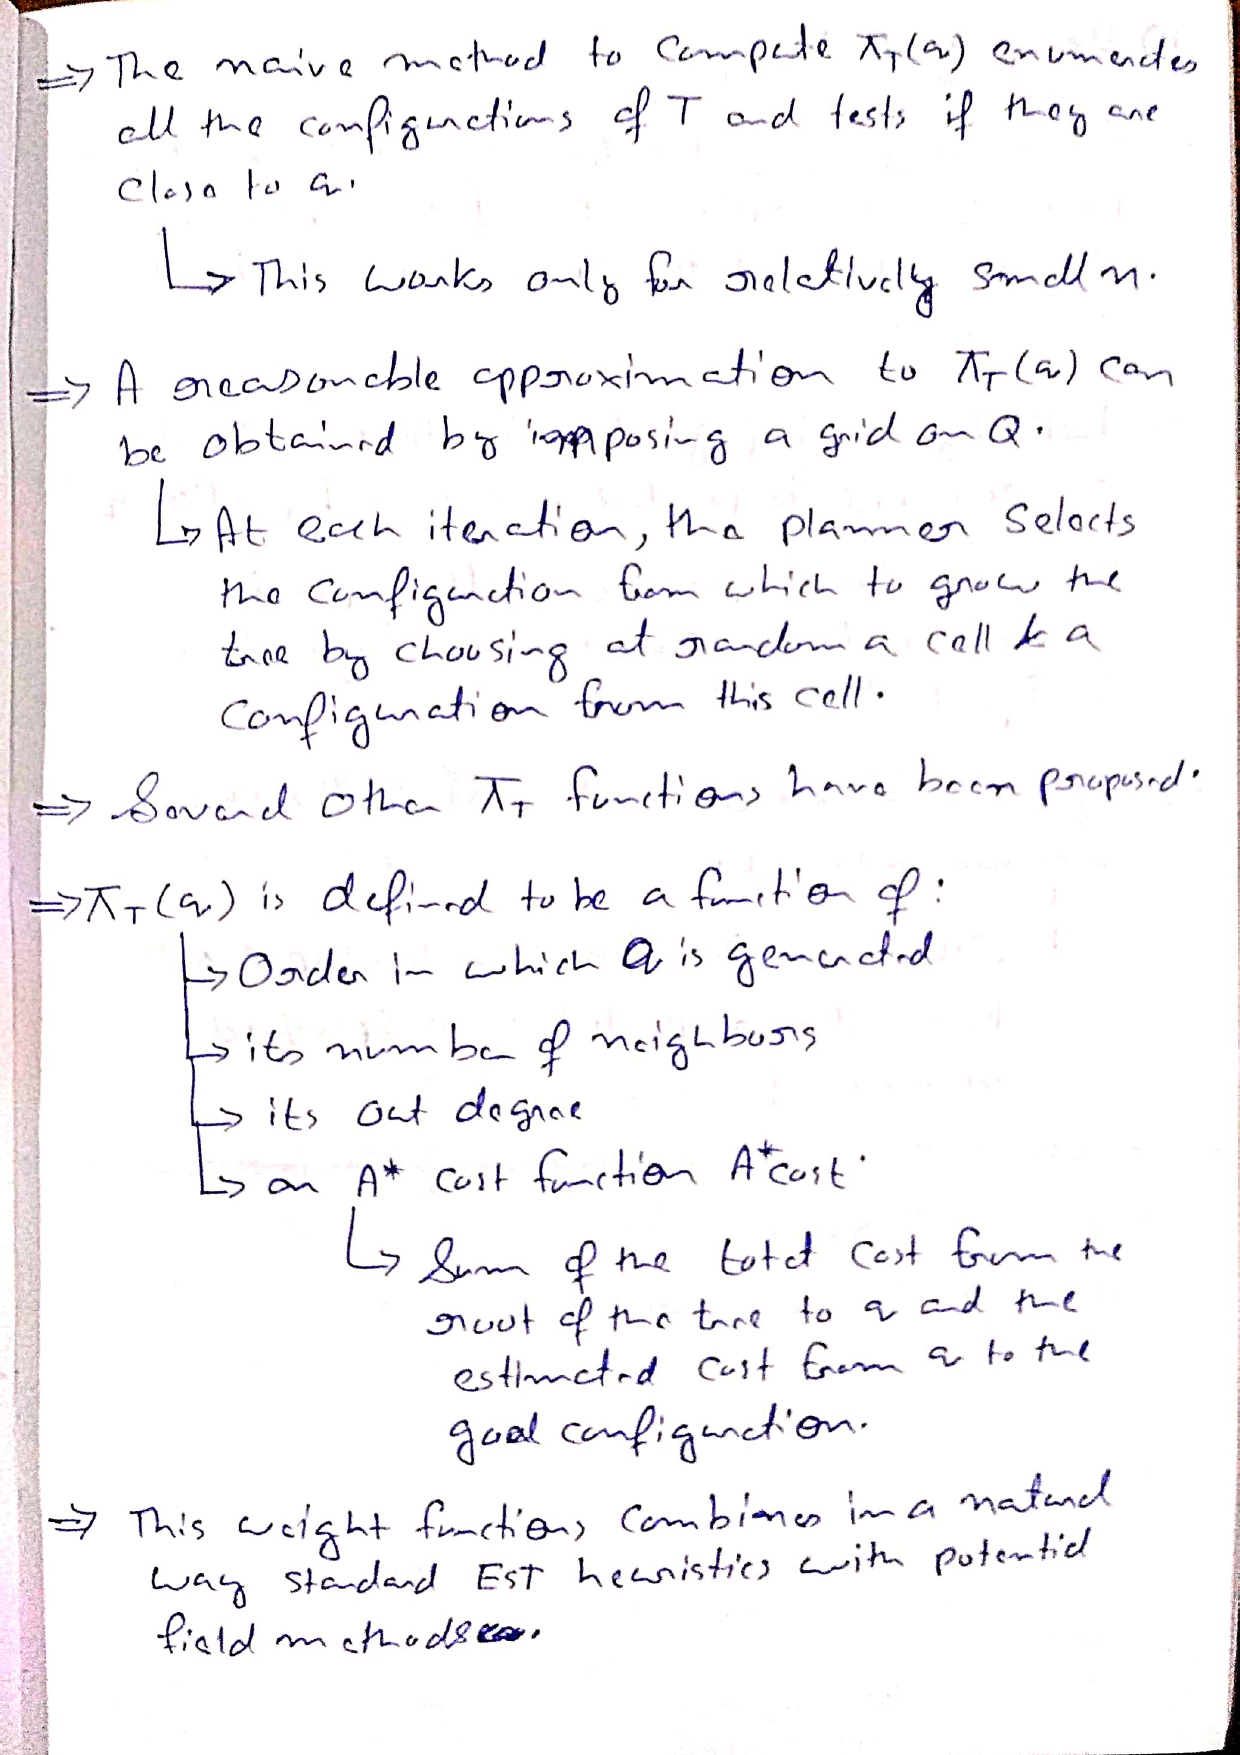 ⇒ The naive method to compute π_T(q) enumerates
all the configurations of T and tests if they are
close to q.
↳ This works only for relatively small n.
⇒ A reasonable approximation to π_T(q) can
be obtained by imposing a grid on Q.
↳ At each iteration, the planner selects
the configuration from which to grow the
tree by choosing at random a cell & a
configuration from this cell.
⇒ Several other π_T functions have been proposed.
⇒ π_T(q) is defined to be a function of:
↳ Order in which q is generated
↳ its number of neighbours
↳ its out degree
↳ an A* cost function A*cost.
↳ Sum of the total cost from the
root of the tree to q and the
estimated cost from q to the
goal configuration.
⇒ This weight functions combines in a natural
way standard EST heuristics with potential
field methods.